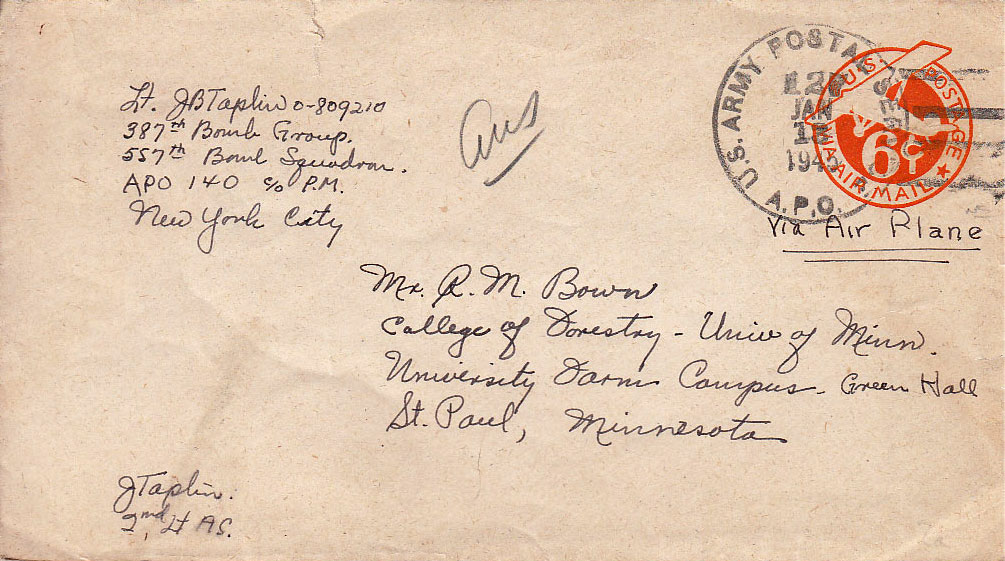 Lt. JBTaplin O-809210
387th Bomb Group.
557th Bomb Squadron.
APO 140 c/o P.M.
New York City
ans
U.S. ARMY POSTAL
JAN
A.P.O.
U.S. POSTAGE
6¢
VIA AIR MAIL
Via Air Plane
Mr. R. M. Bown
College of Forestry - Univ of Minn.
University Farm Campus - Green Hall
St. Paul, Minnesota
JTaplin.
2nd Lt AS.